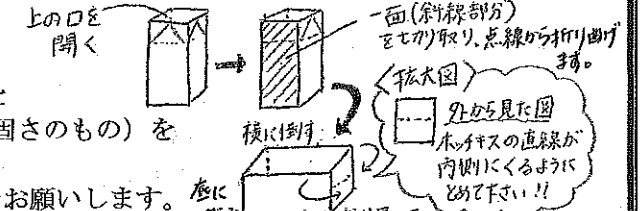 上の口を
開く
一面(斜線部分)
を切り取り、点線から折り曲げ
ます。
固さのもの）を
お願いします。
横に倒す
拡大図
外から見た図
ホッチキスの直線が
内側にくるように
とめて下さい!!
底に